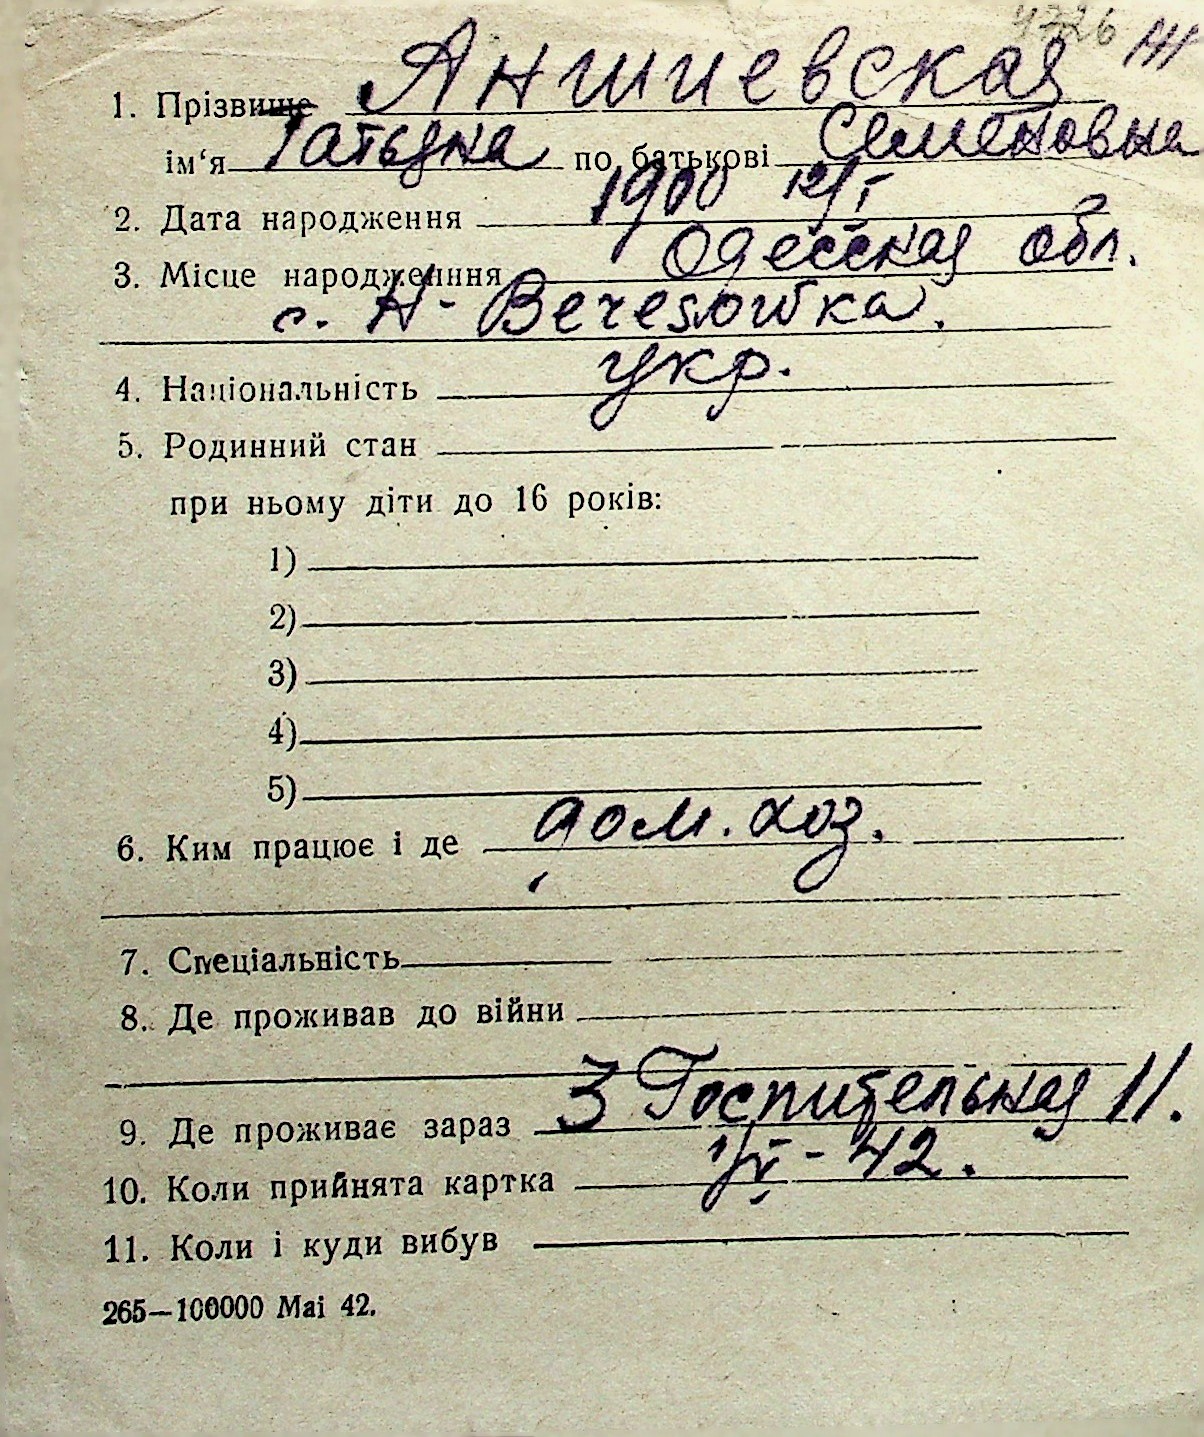 4326
1. Прізвище Аншиевская
ім‘я Татьяна по батькові Семеновна
2. Дата народження 1900 12/I
3. Місце народженння Одесская обл.
с. Н- Beresowka.
4. Національність укр.
5. Родинний стан
при ньому діти до 16 років:
1)
2)
3)
4)
5)
6. Ким працює і де дом. хоз.
7. Спеціальність
8. Де проживав до війни
9. Де проживає зараз 3 Госпительная 11.
10. Коли прийнята картка 1/V - 42.
11. Коли і куди вибув
265—100000 Mai 42.